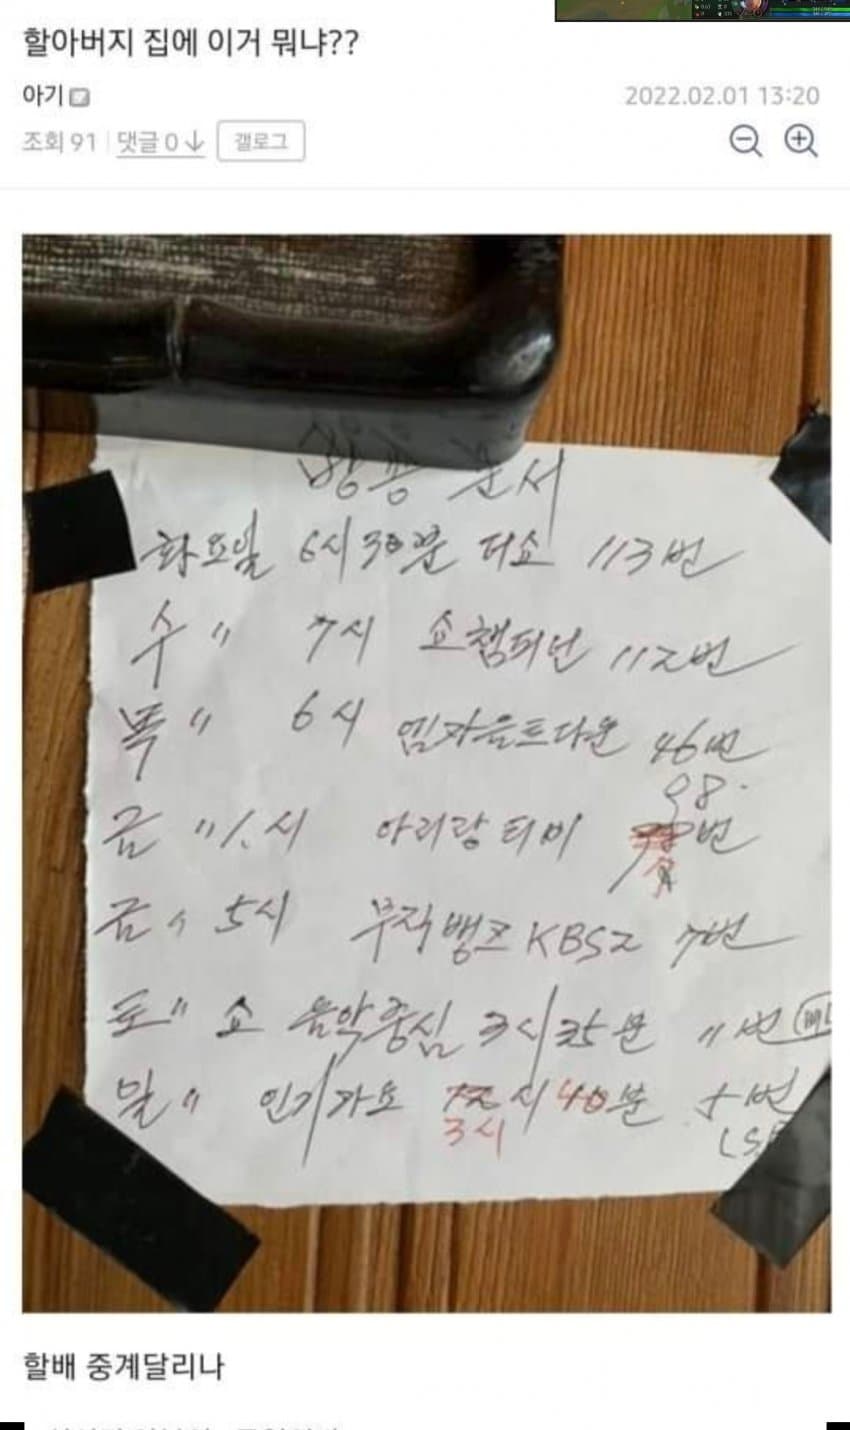 할아버지 집에 이거 뭐냐??
아기
2022.02.01 13:20
조회 91 댓글 0↓ 갤로그
방송 순서
화요일 6시 30분 더쇼 113번
수 " 7시 쇼챔피언 112번
목 " 6시 엠카운트다운 46번
98.
금 " 1.시 아리랑 티비 번
금 " 5시 뮤직뱅크 KBS2 7번
토 " 쇼 음악중심 3시 35분 11번
일 " 인기가요 12시 40분 5번
3시
할배 중계달리나